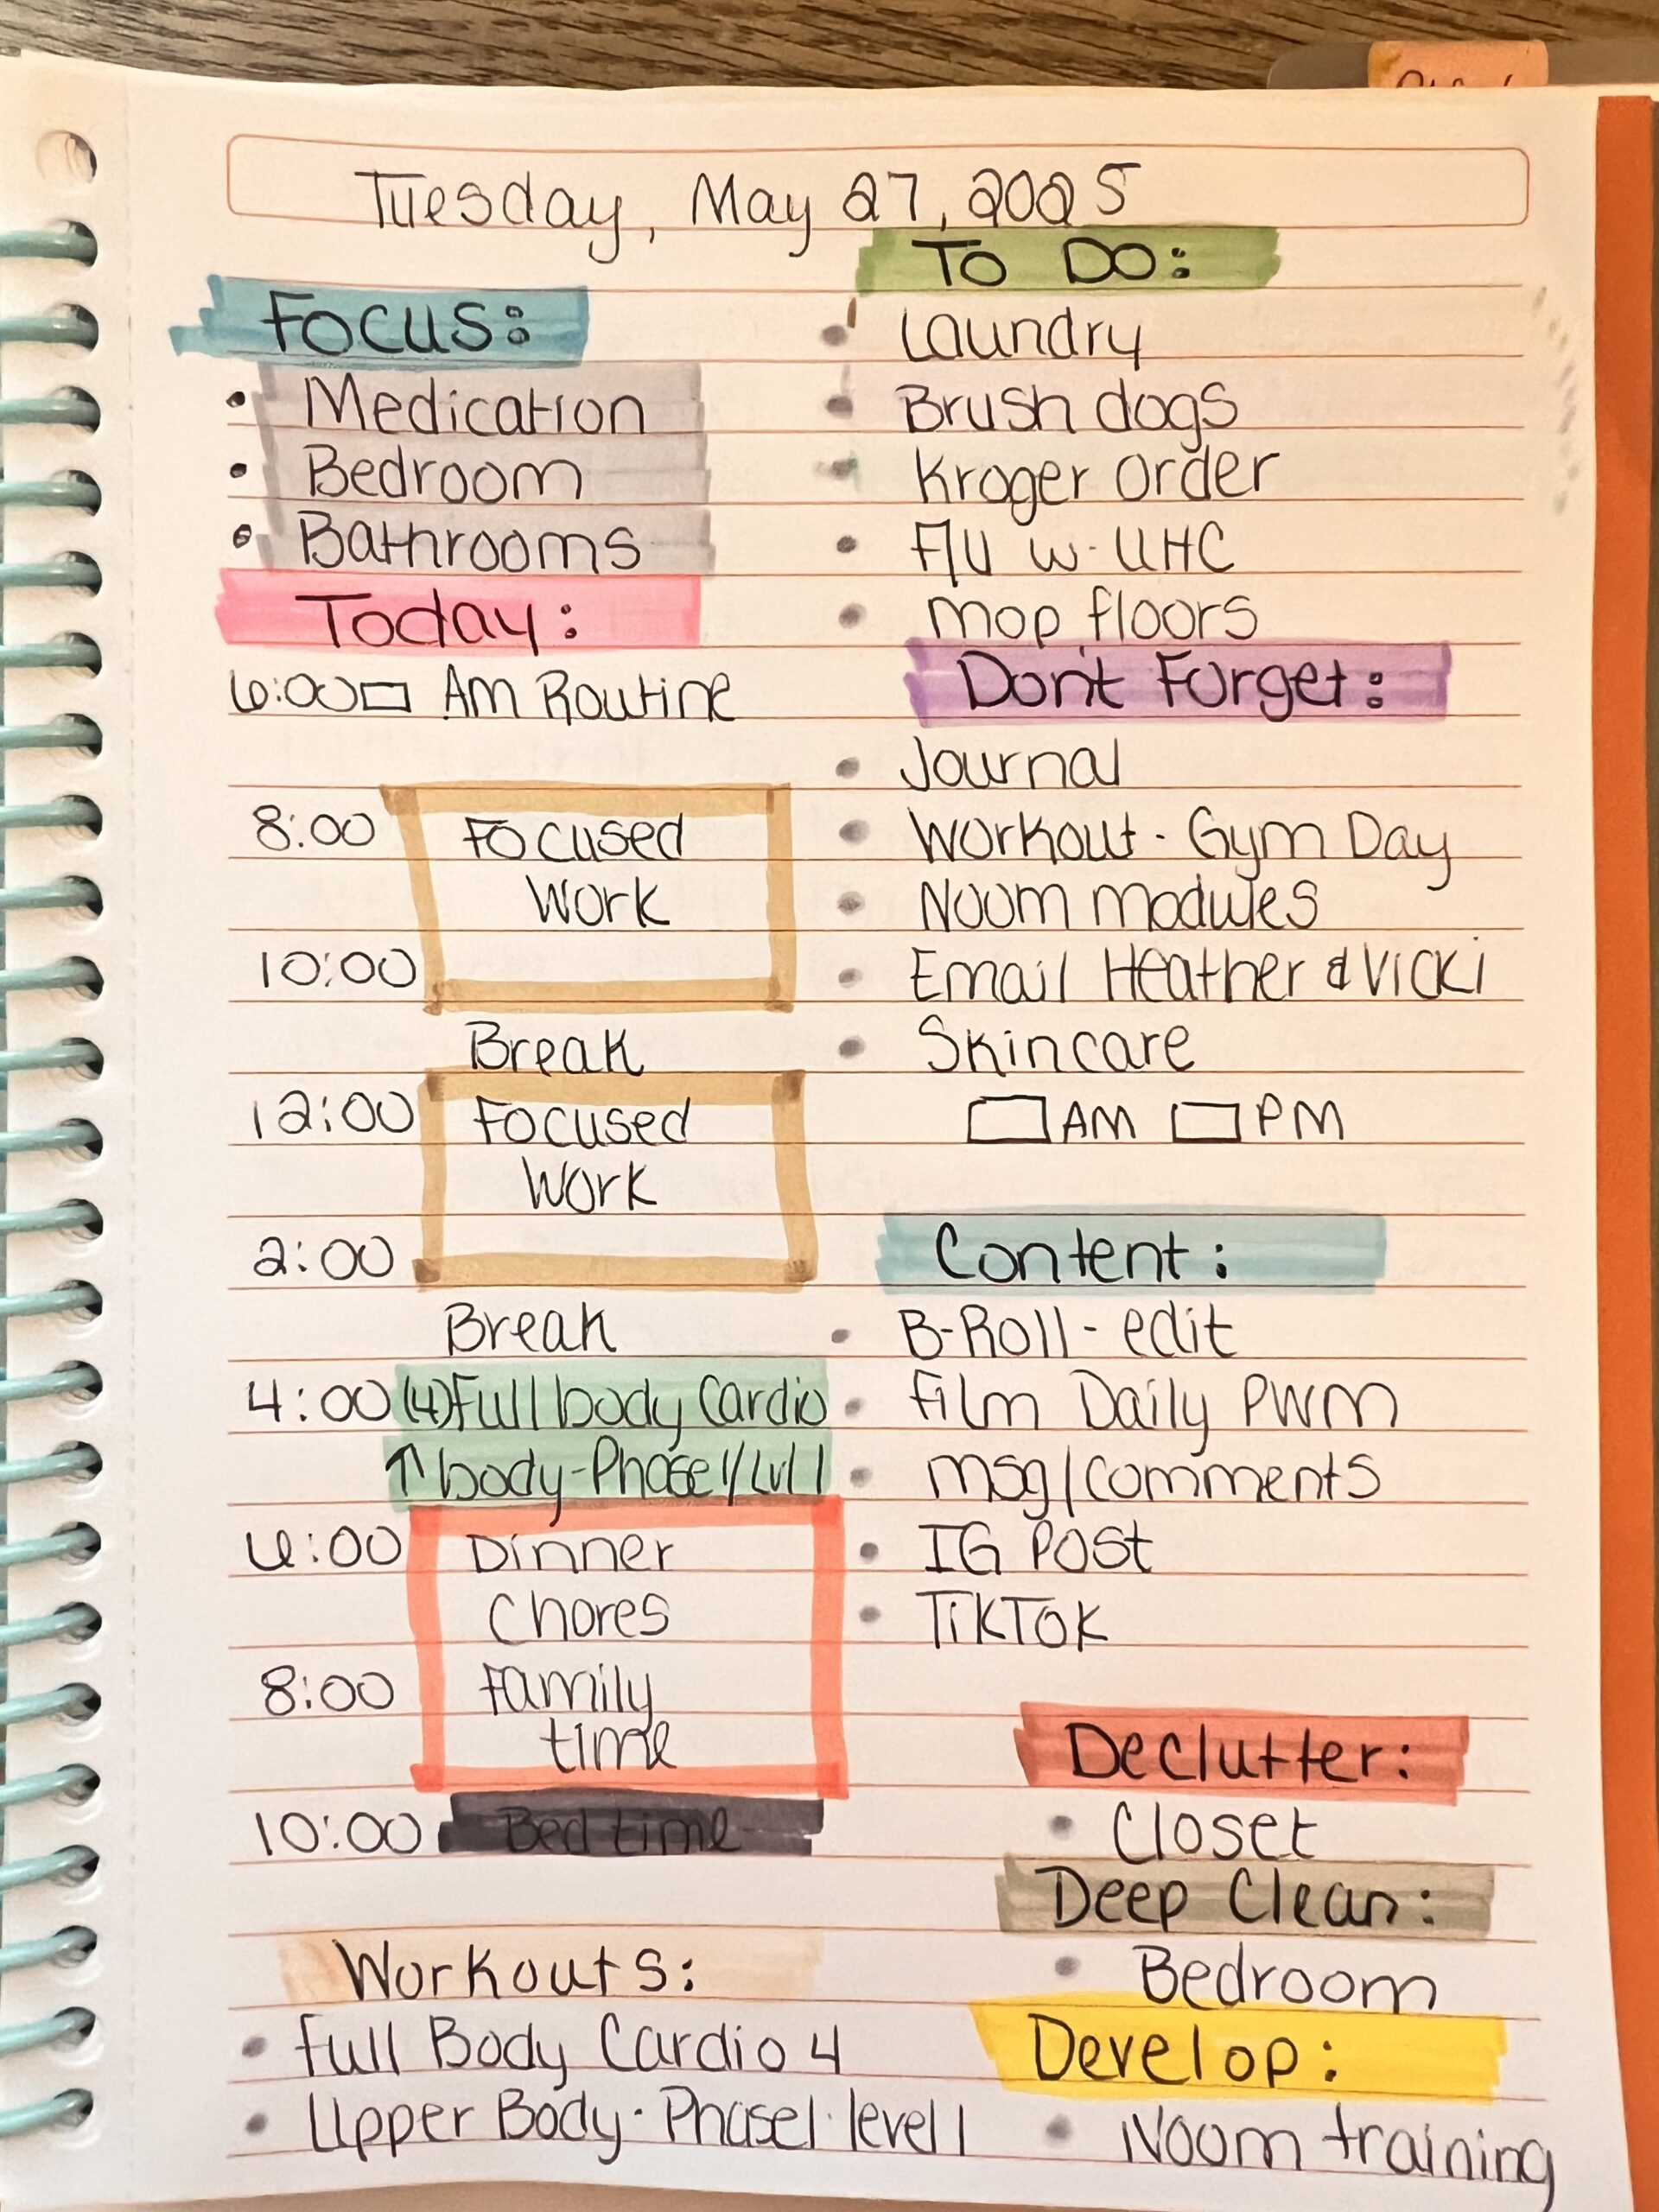 Tuesday, May 27, 2025
Focus:
• Medication
• Bedroom
• Bathrooms
Today:
6:00 □ AM Routine
8:00 Focused
Work
10:00
Break
12:00 Focused
Work
2:00
Break
4:00 (4) Full body Cardio
↑ body-Phase 1/Lvl 1
6:00 Dinner
Chores
8:00 Family
time
10:00 Bedtime
Workouts:
• Full Body Cardio 4
• Upper Body · Phase 1 · level 1
To Do:
• Laundry
• Brush dogs
• Kroger order
• F/U w- UHC
• Mop floors
Don't Forget:
• Journal
• Workout - Gym Day
• Noom modules
• Email Heather & Vicki
• Skincare
□ AM □ PM
Content:
• B-Roll - edit
• Film Daily PWM
• msg/comments
• IG Post
• TikTok
Declutter:
• Closet
Deep Clean:
• Bedroom
Develop:
• Noom training